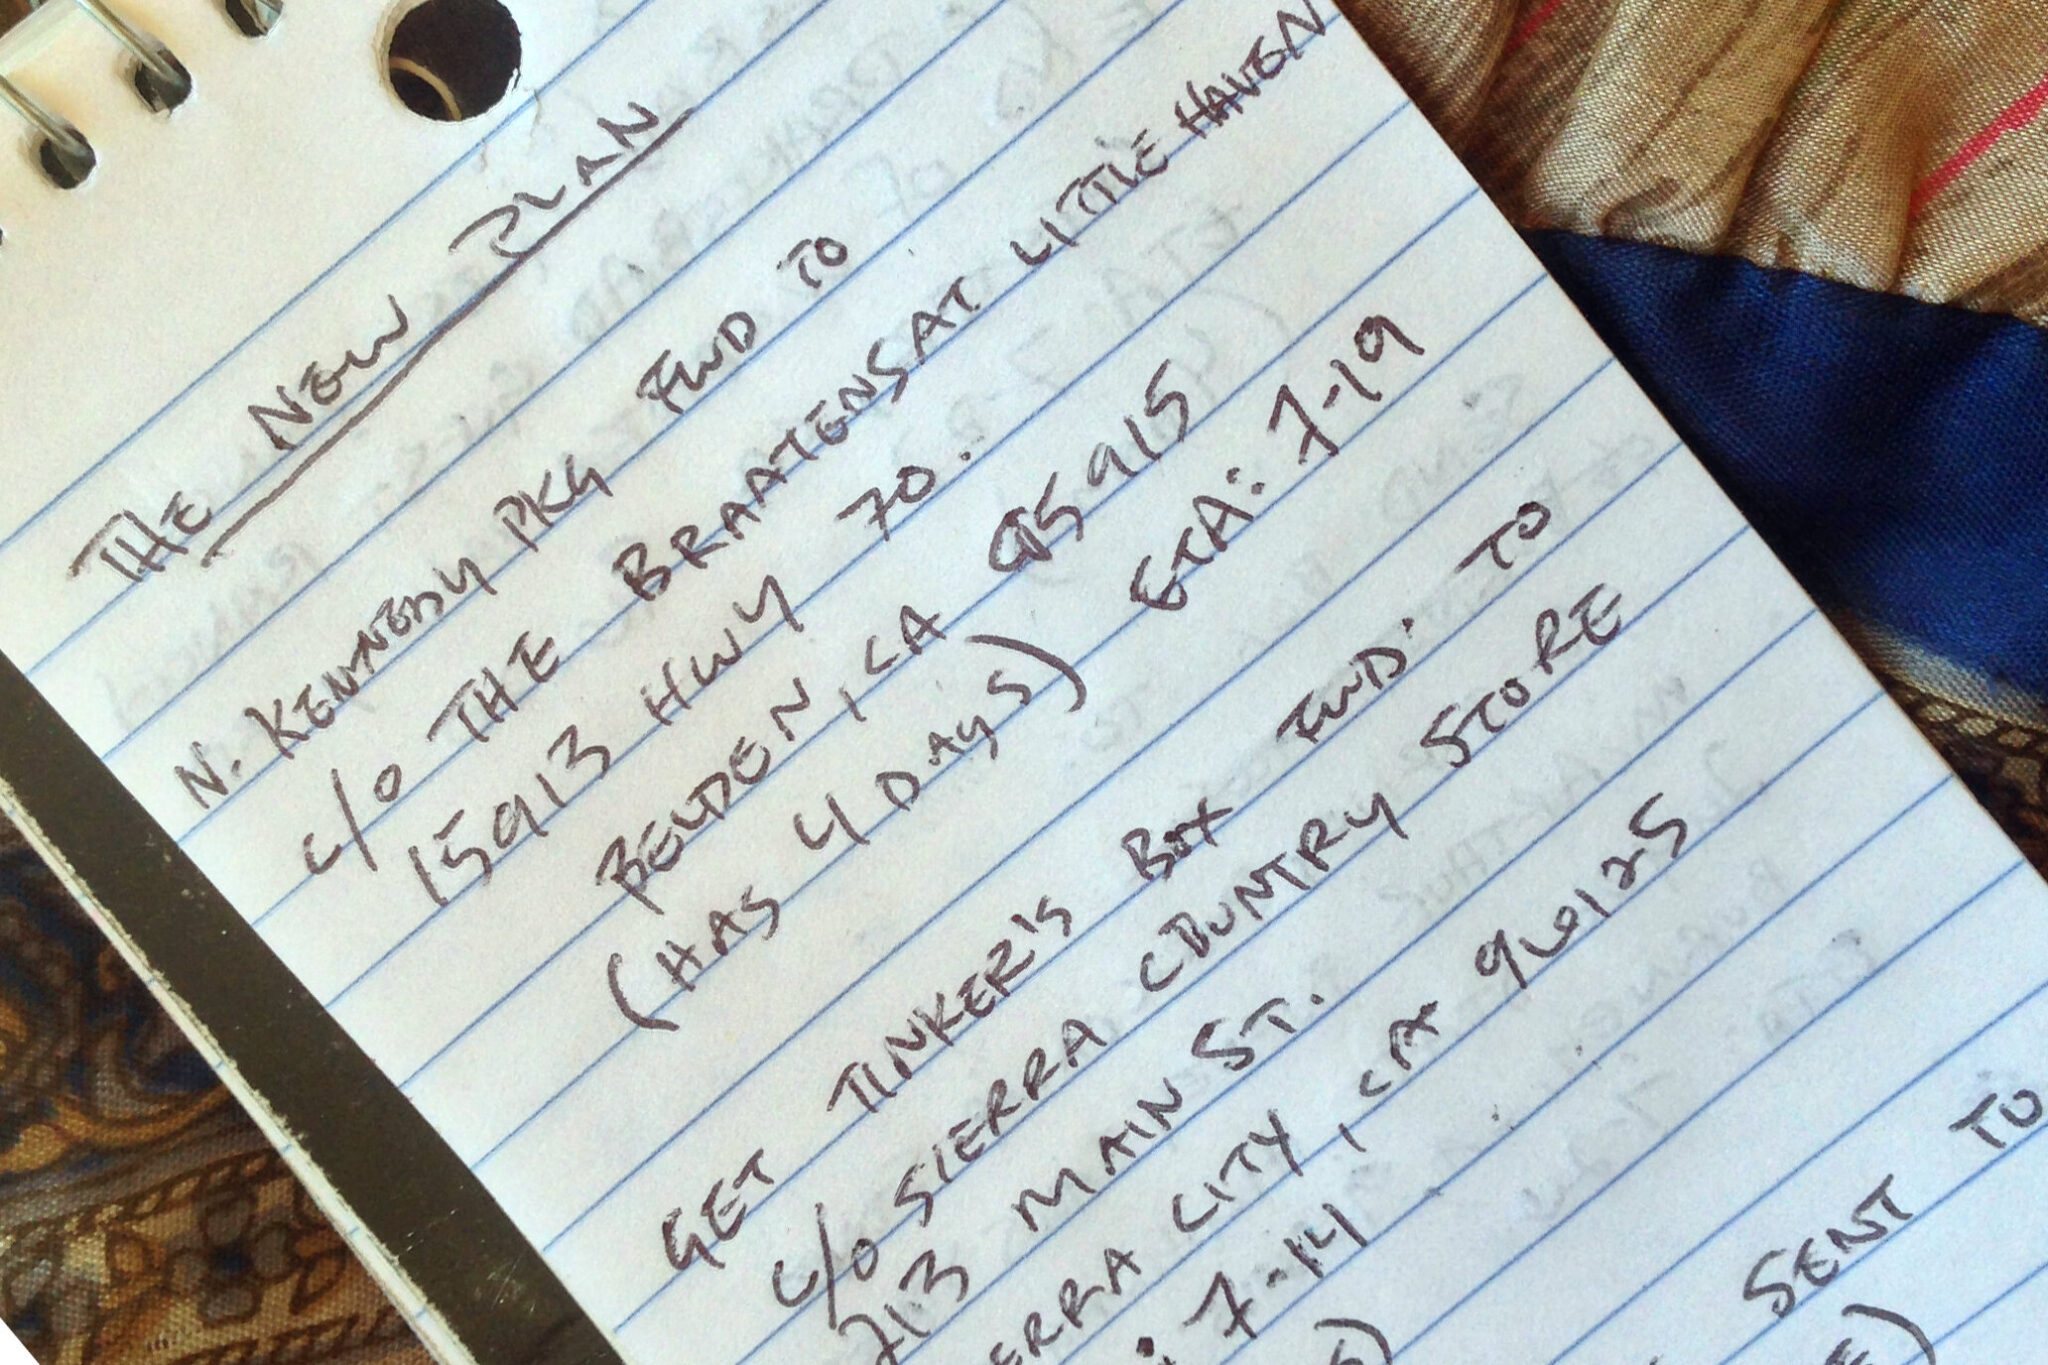 THE NEW PLAN
N. KENNEDY PKG FWD TO
C/O THE BRAATENS AT LITTLE HAVEN
15913 HWY 70.
BELDEN, CA 95915
(HAS 4 DAYS) ETA: 7-19
GET TINKER'S BOX FWD. TO
C/O SIERRA COUNTRY STORE
213 MAIN ST.
ERRA CITY, CA 96125
: 7-14
SENT TO